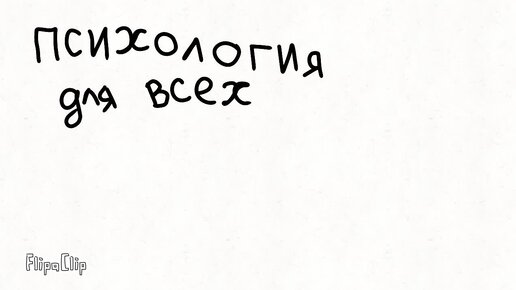 ПСИХОЛОГИЯ
для всех
FlipaClip